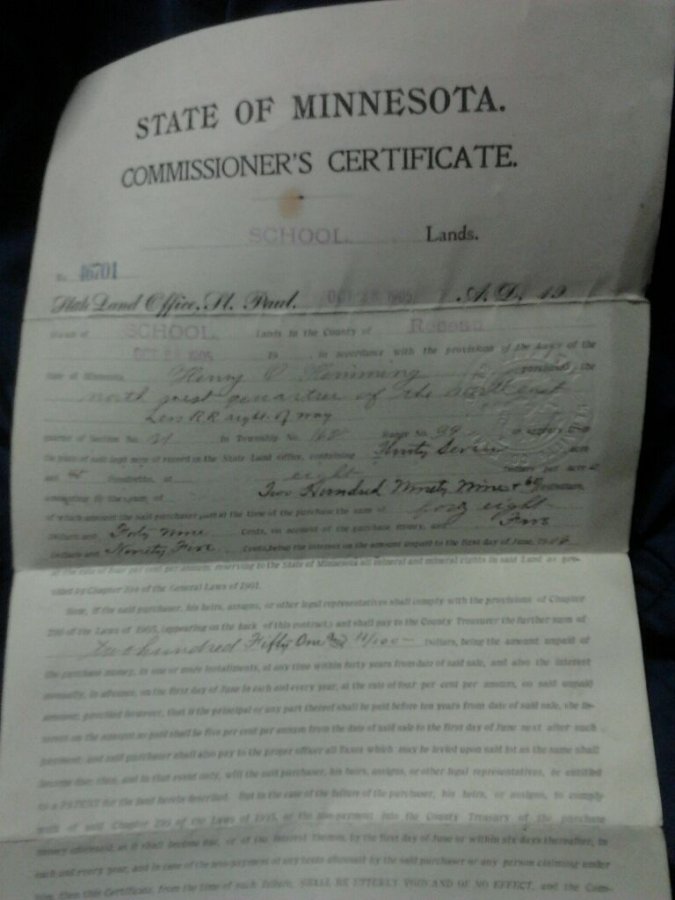 STATE OF MINNESOTA.
COMMISSIONER'S CERTIFICATE.
SCHOOL Lands.
No. 46701
State Land Office, St. Paul. A. D. 19
SCHOOL. Lands in the County of Roseau
OCT 1905 19 , in accordance with the provision of the laws of the
State of Minnesota, Henry purchase the
north west quarter of the north east
Less RR right of way
quarter of Section No. in Township No. Range No.
the State Land office, containing Thirty Seven acres
and Hundredths, at eight Dollars per acre
amounting to the sum of Two Hundred Ninety Nine &
of which amount the said purchaser paid at the time of the purchase the sum of forty eight
Dollars and Forty nine Cents, on account of the purchase money, and Five
Dollars and Ninety Five Cents, being the interest on the amount unpaid to the first day of June, 190
at the rate of four per cent per annum; reserving to the State of Minnesota all mineral and mineral rights in said Land as pro-
vided by Chapter of the General Laws of 1901.
Now, if the said purchaser, his heirs, assigns, or other legal representatives shall comply with the provisions of Chapter
of the Laws of (appearing on the back of this contract) and shall pay to the County Treasurer the further sum of
Two hundred Fifty One Dollars, being the amount unpaid of
the purchase money, in one or more installments, at any time within forty years from date of said sale, and also the interest
annually, in advance, on the first day of June in each and every year, at the rate of four per cent per annum, on said unpaid
amount, provided however, that if the principal or any part thereof shall be paid before ten years from date of said sale, the in-
terest on the amount so paid shall be five per cent per annum from the date of said sale to the first day of June next after such
payment; and said purchaser shall also pay to the proper officer all Taxes which may be levied upon said lot as the same shall
become due; then, and in that event only, will the said purchaser, his heirs, assigns, or other legal representatives, be entitled
to a PATENT for the land herein described. But in the case of the failure of the purchaser, his heirs, or assigns, to comply
with of said Chapter of the Laws of or the non-payment into the County Treasury of the purchase
money aforesaid, as it shall become due, or of the interest thereon, by the first day of June or within six days thereafter, in
each and every year, and in case of the non-payment of any taxes aforesaid by the said purchaser or any person claiming under
him, then this Certificate, from the time of such failure, SHALL BE UTTERLY VOID AND OF NO EFFECT, and the Com-